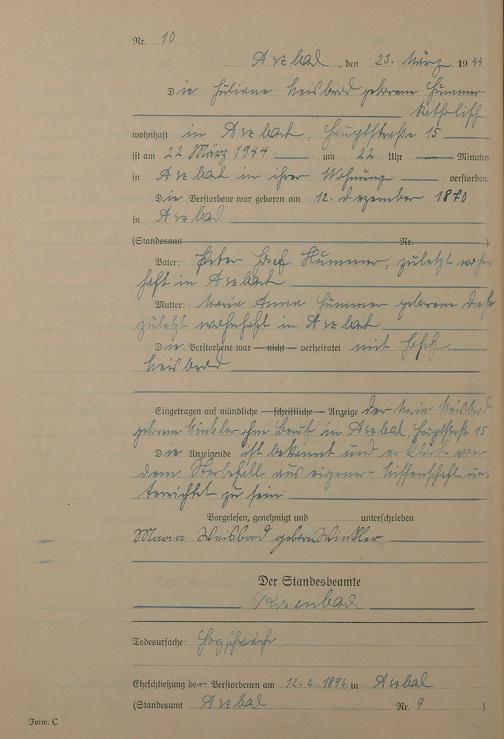 Nr. 10
Arzbach, den 23. März 1944
Die Juliane Weisbrod geborene Hummer
katholisch
wohnhaft in Arzbach, Hauptstraße 15
ist am 22 März 1944 um 22 Uhr Minuten
in Arzbach in ihrer Wohnung verstorben.
Die Verstorbene war geboren am 12. Dezember 1870
in Arzbach
(Standesamt Nr. )
Vater: Peter Josef Hummer, zuletzt wohn-
haft in Arzbach
Mutter: Maria Anna Hummer geborene
zuletzt wohnhaft in Arzbach
Die Verstorbene war nicht verheiratet mit Josef
Weisbrod
Eingetragen auf mündliche schriftliche Anzeige der Maria Weisbrod
geborene Winkler ohne Beruf in Arzbach Hauptstraße 15
Die Anzeigende ist bekannt und erklärt von
dem Sterbefall aus eigener Wissenschaft un-
terrichtet zu sein
Vorgelesen, genehmigt und unterschrieben
Maria Weisbrod geborene Winkler
Der Standesbeamte
Todesursache: Herzschwäche
Eheschließung der Verstorbenen am 12.6.1894 in Arzbach
(Standesamt Arzbach Nr. 9 ).
Form. C